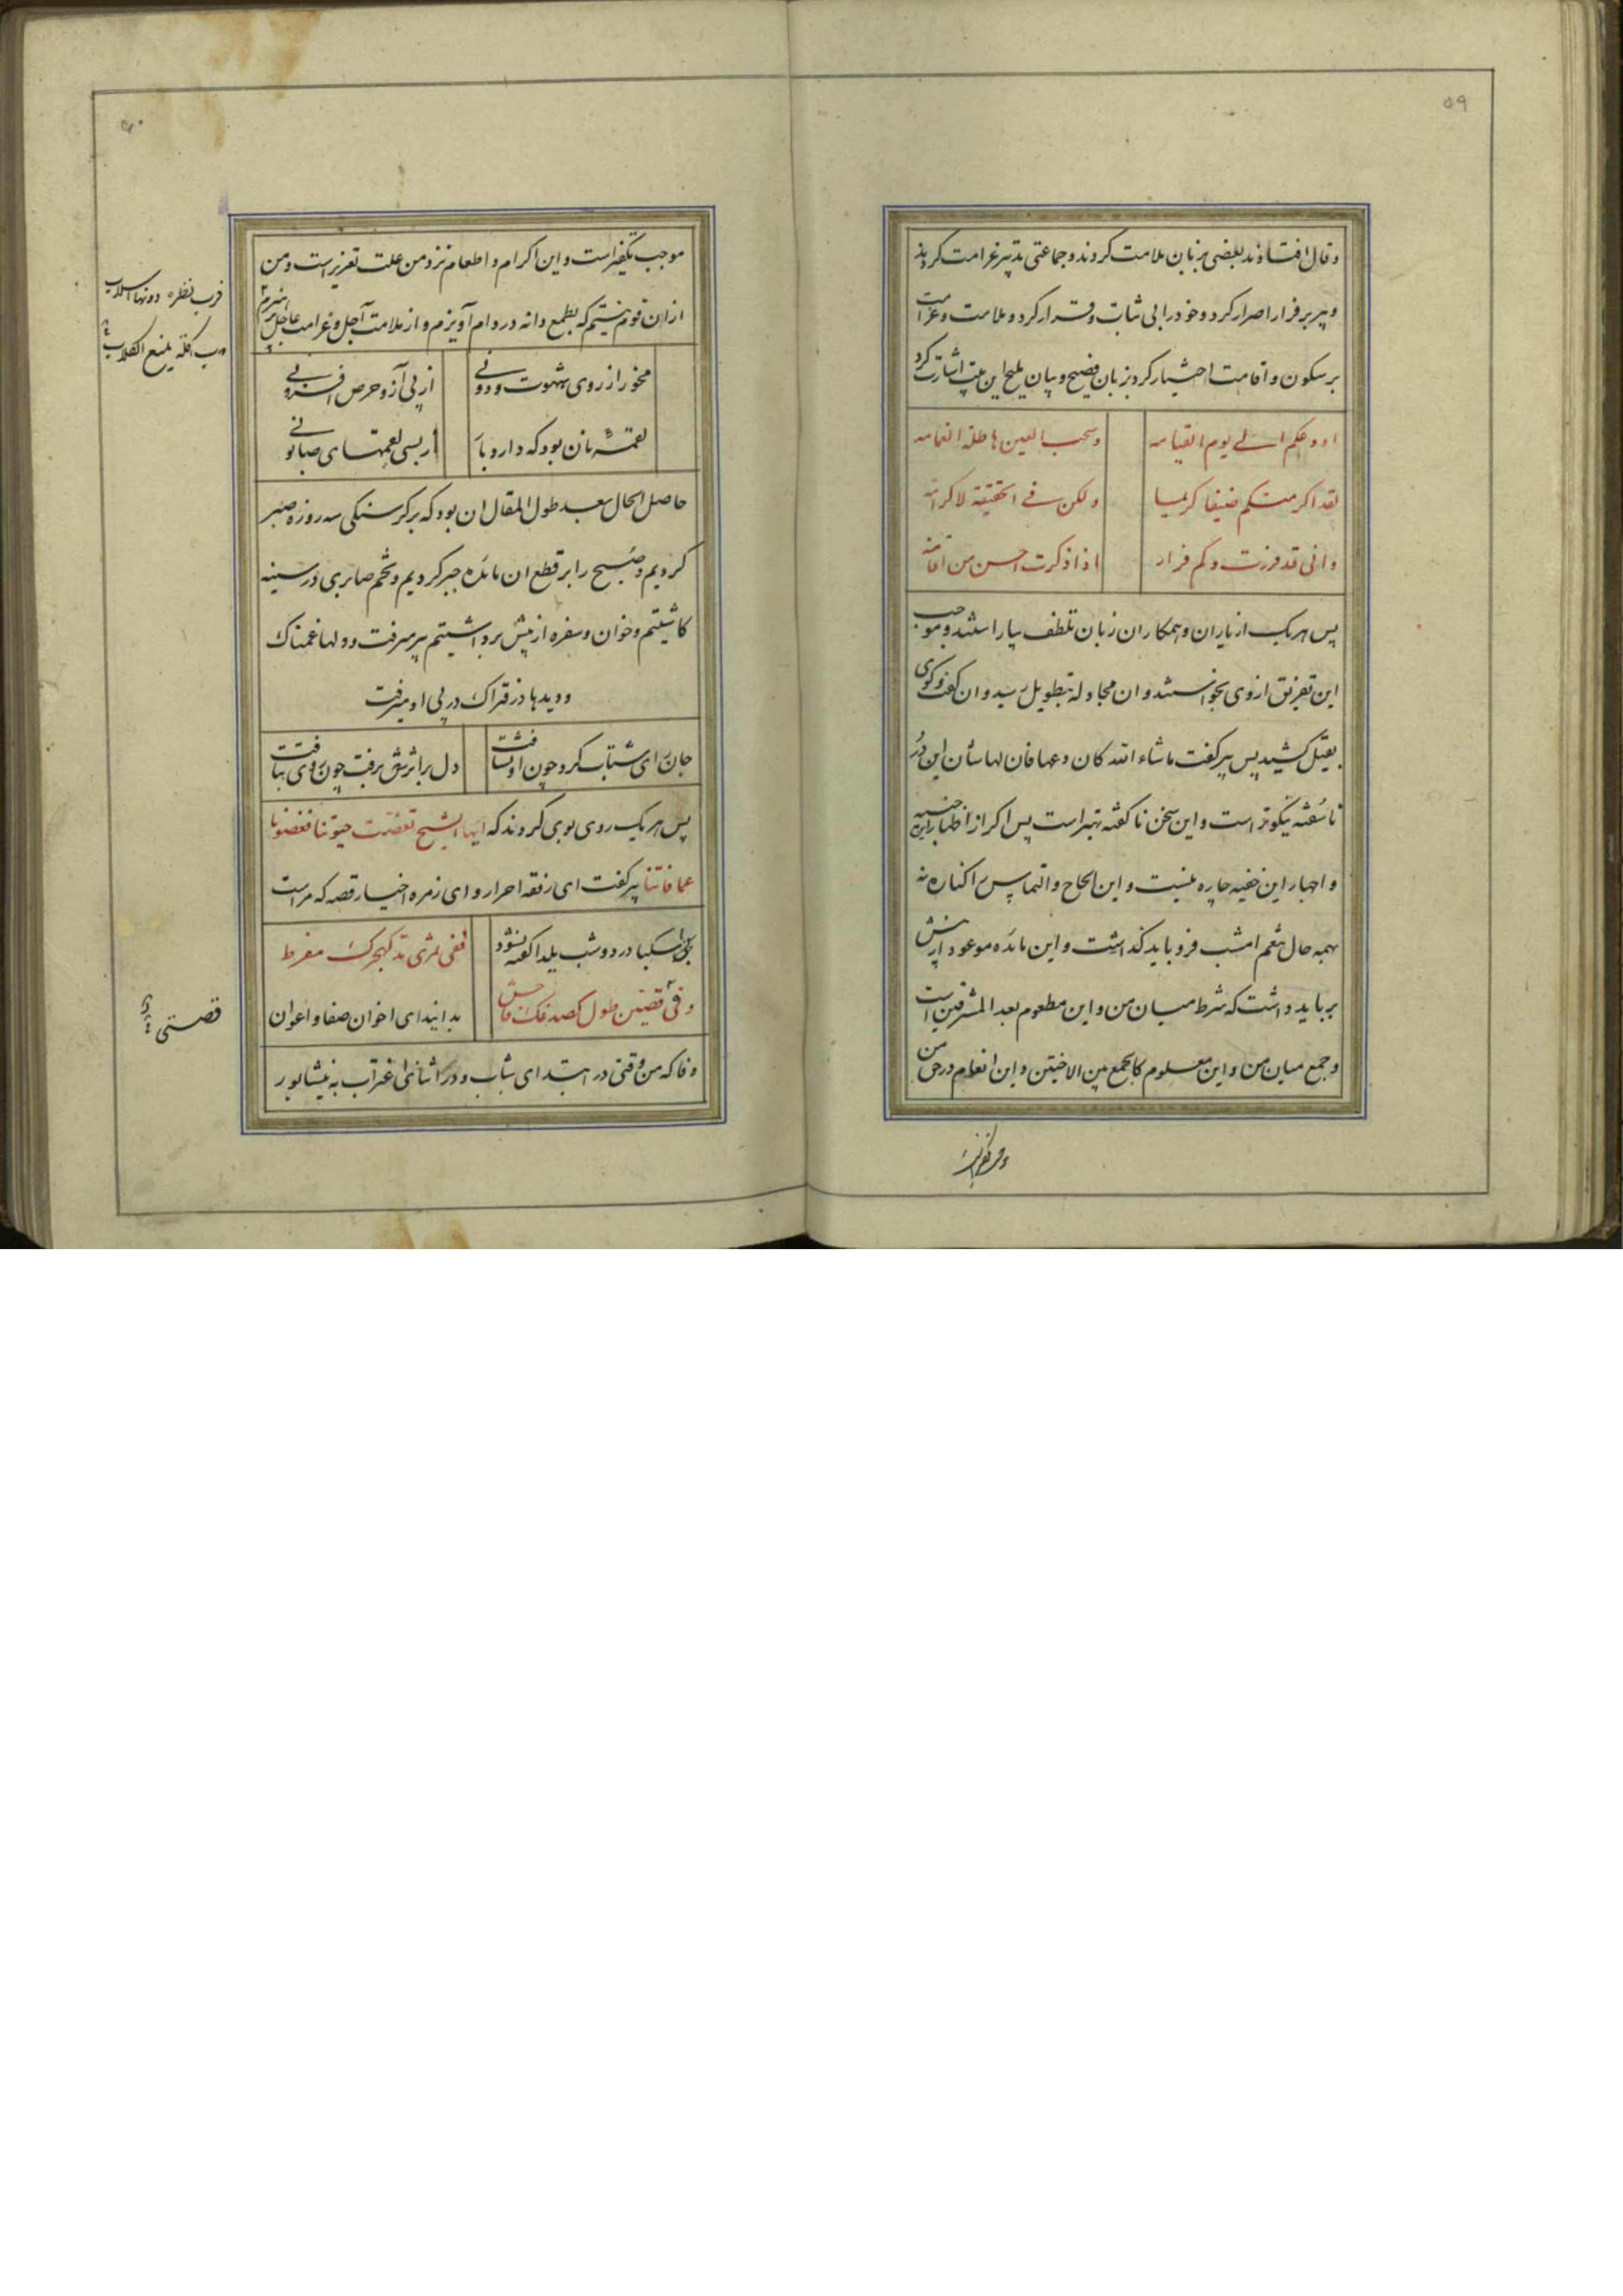 ۵۹
و قال افتادند بعضی بزبان ملامت کردند و جماعتی تدبیر غرامت کردند
و پیر بر فرار اصرار کرد و خود را بی ثبات و قرار کرد و ملامت و غرامت
بر سکون و اقامت اختیار کرد بزبان فصیح و بیان ملیح این بیت اشارت کرد
اودعکم الی یوم القیامه وسحب العین هاطلة الغمامه
لقد اکرمتکم ضیفا کریما ولکن فی الحقیقة لا کرامه
وانی قد فررت وکم فرار اذا ذکرت احسن من اقامه
پس هر یک از یاران و همکاران زبان تلطف بیاراستند و موجب
این تفریق از وی بخواستند و ان مجادله بتطویل رسید و ان گفت و گوی
کشید پس پیر گفت ما شاء الله کان این در
ناسفته نیکوتر است و این سخن ناگفته بهتر است پس اگر از اظهار این
و اخبار این خفیه چاره نیست و این الحاح و التماس را کناره نه
بهمه حال نعم امشب فرو باید گذاشت و این مائده موعود از پیش
بر باید داشت که شرط میان من و این مطعوم بعد المشرقین است
و جمع میان من و این معلوم کالجمع بین الاختین و این انعام در حق من
۶۰
موجب تکفیر است و این اکرام و اطعام نزد من علت تعزیر است و من
از ان قوم نیستم که بطمع دانه در دام آویزم و از ملامت آجل و غرامت عاجل نپرهیزم
مخور از روی شهوت و دونی از پی آز و حرص افزونی
لقمه نان بود که دارد باز از بسی لقمهای صابونی
حاصل الحال بعد طول المقال ان بود که بر گرسنگی سه روزه صبر
کردیم و صبح را بر قطع ان مائده جبر کردیم و تخم صابری در سینه
کاشتیم و خوان و سفره از پیش برداشتیم پیر میرفت و دلها غمناک
و دیدها در فتراک در پی او میرفت
جان رای شتاب کرد چون او بشتافت دل بر اثرش برفت چون روی بتافت
پس هر یک روی بوی کردند که ایها الشیخ
عما فاتنا پیر گفت ای رفقه احرار و ای زمره اخیار قصه که مراست
در دو شب یلدا گفته نشود ففی
و فی قصتی طول بدانید ای اخوان صفا و اعوان
وفا که من وقتی در ابتدای شباب و در اثنای اغتراب به نیشابور
فرب نظرة دونها اسلاب
ورب اکلة تمنع الکلاب
قصتی